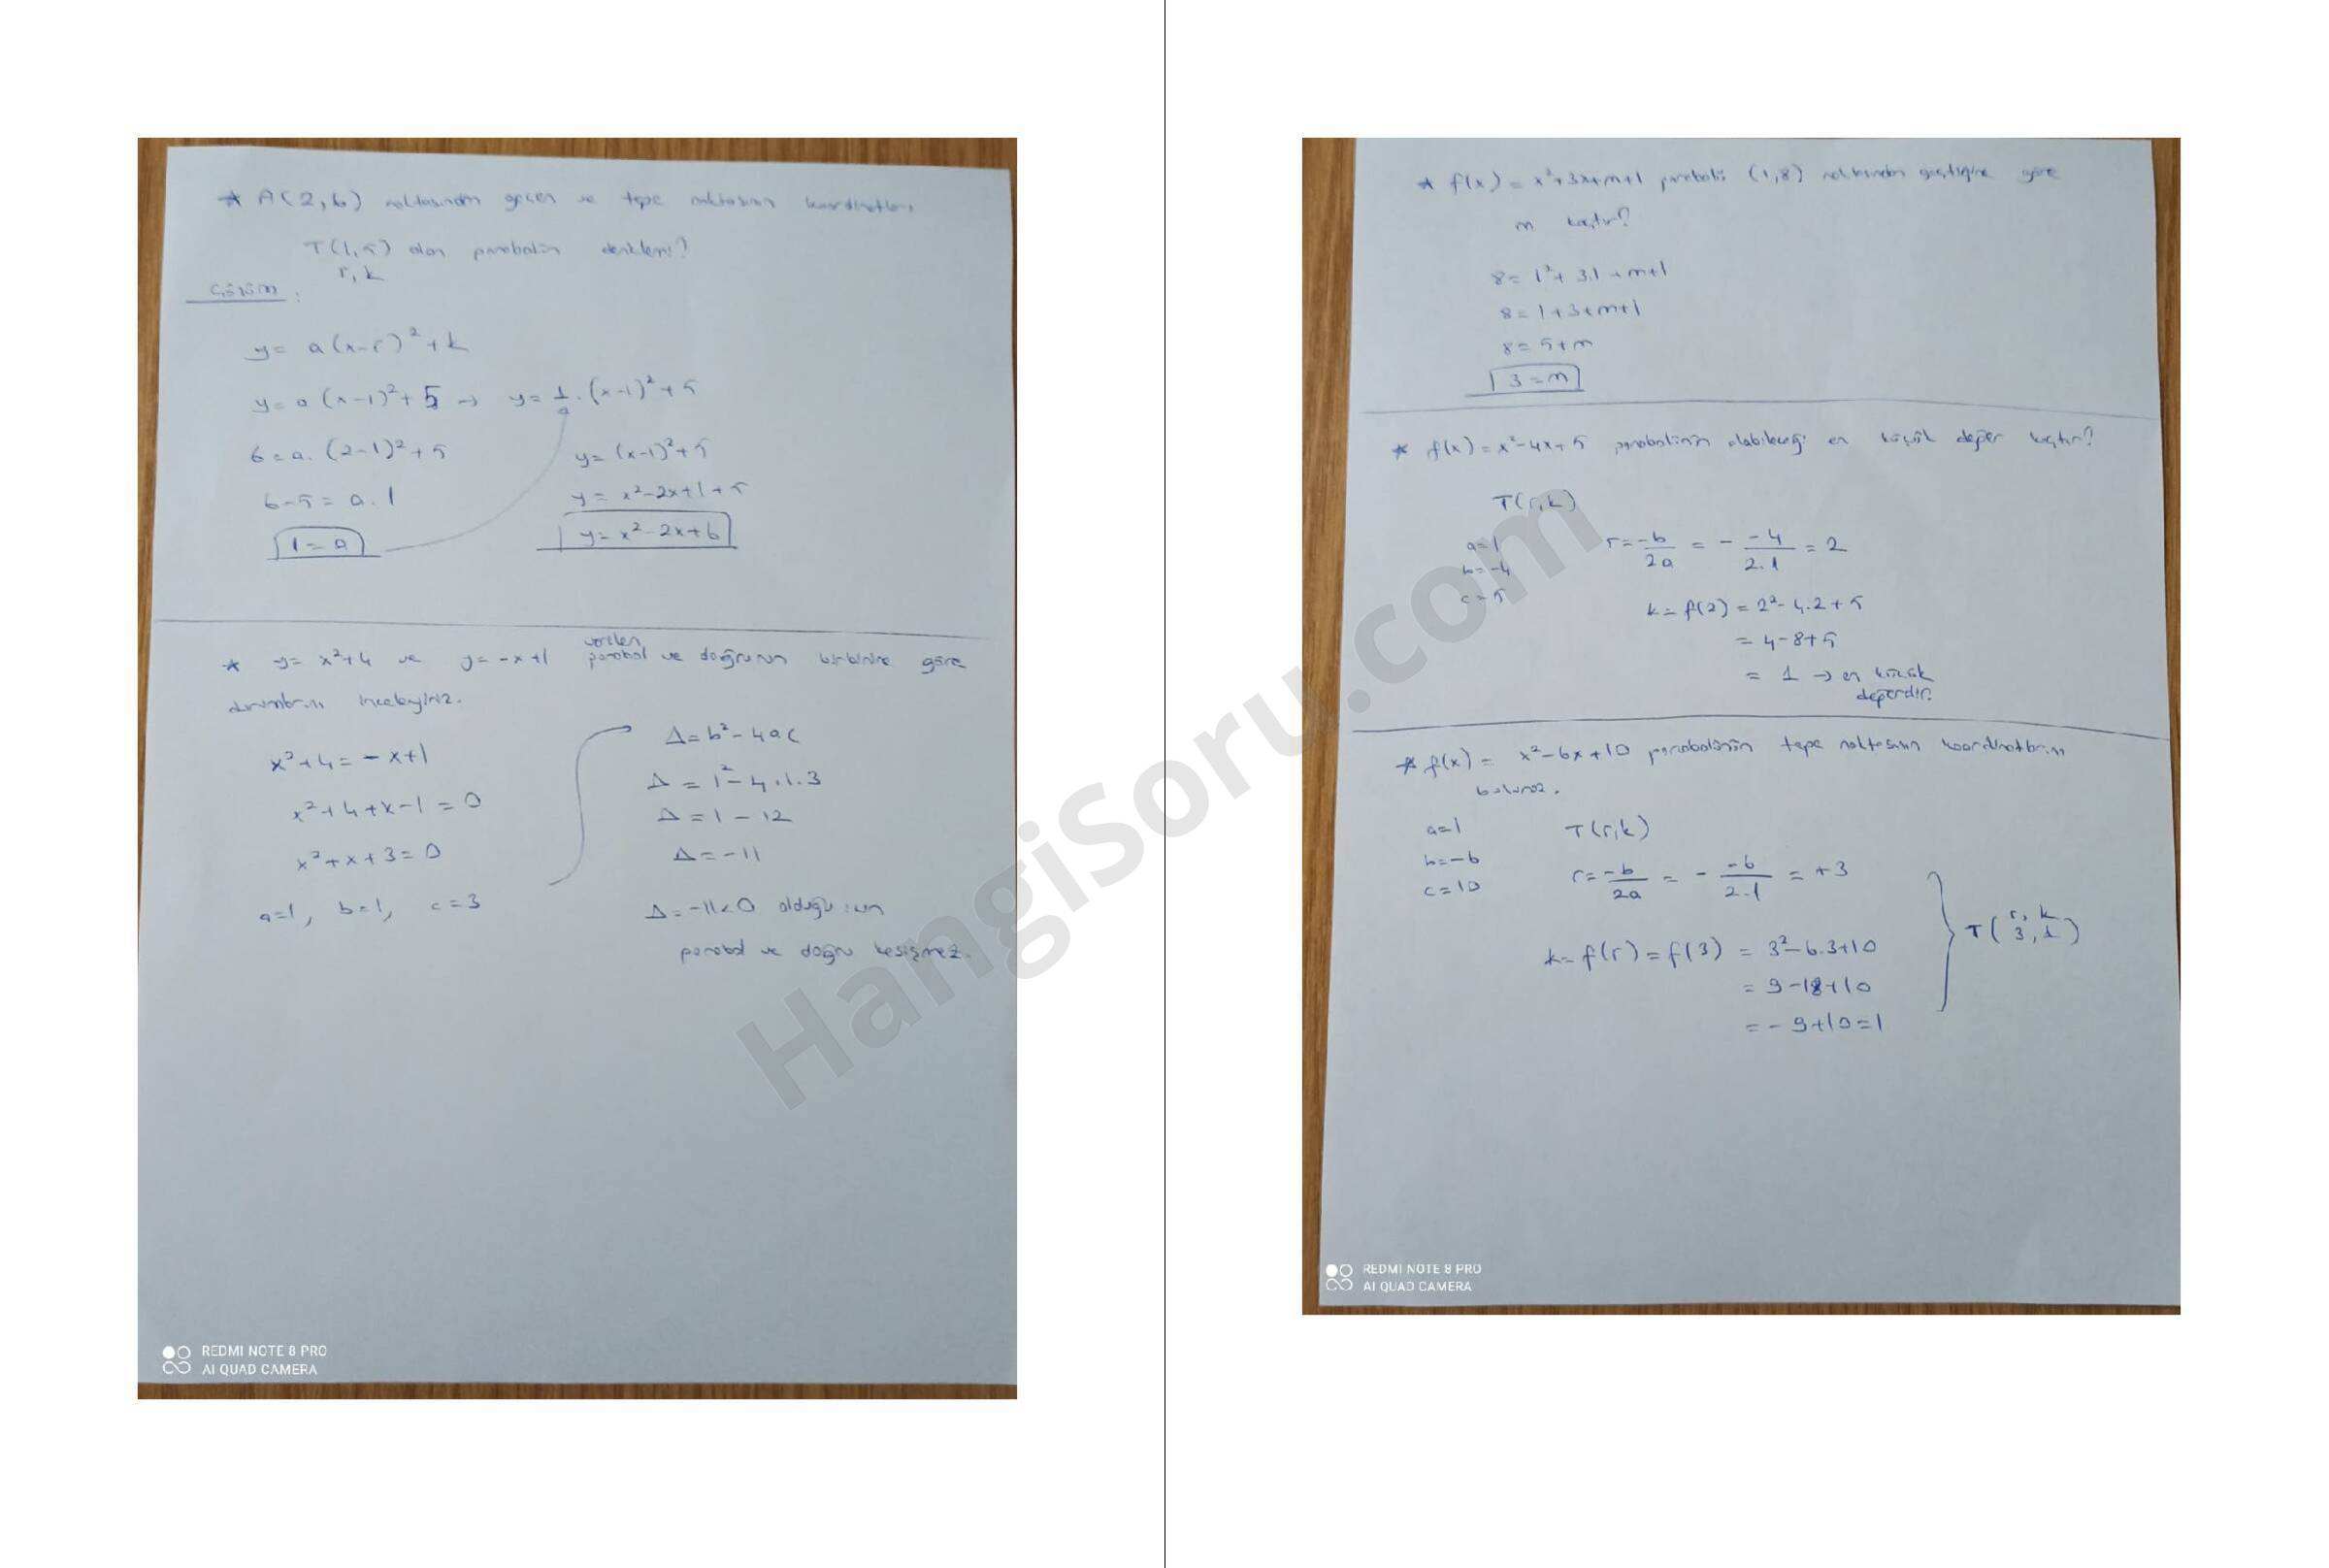 * A(2,6) noktasından geçen ve tepe noktasının koordinatları
T(1,5) olan parabolün denklemi?
r, k
Çözüm:
y = a(x-r)² + k
y = a(x-1)² + 5 → y = 1.(x-1)² + 5
a
6 = a.(2-1)² + 5
y = (x-1)² + 5
6-5 = a.1
y = x²-2x+1+5
1 = a
y = x²-2x+6
* y = x²+4 ve y = -x+1 verilen parabol ve doğrunun birbirine göre
durumlarını inceleyiniz.
x²+4 = -x+1
x²+4+x-1 = 0
x²+x+3 = 0
a=1, b=1, c=3
Δ = b²-4ac
Δ = 1²-4.1.3
Δ = 1-12
Δ = -11
Δ = -11<0 olduğu için
parabol ve doğru kesişmez.
REDMI NOTE 8 PRO
AI QUAD CAMERA
* f(x) = x²+3x+m+1 parabolü (1,8) noktasından geçtiğine göre
m kaçtır?
8 = 1²+3.1+m+1
8 = 1+3+m+1
8 = 5+m
3 = m
* f(x) = x²-4x+5 parabolünün alabileceği en küçük değer kaçtır?
T(r,k)
a=1
b=-4
c=5
r = -b/2a = - -4/2.1 = 2
k = f(2) = 2²-4.2+5
= 4-8+5
= 1 → en küçük
değerdir.
* f(x) = x²-6x+10 parabolünün tepe noktasının koordinatlarını
bulunuz.
a=1
b=-6
c=10
T(r,k)
r = -b/2a = - -6/2.1 = +3
k = f(r) = f(3) = 3²-6.3+10
= 9-18+10
= -9+10=1
r, k
T(3,1)
REDMI NOTE 8 PRO
AI QUAD CAMERA
HangiSoru.com